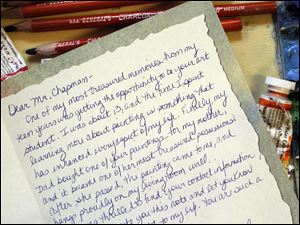 GENERAL'S CHARCOAL
MEDIUM
GENERAL'S
Dear Mr. Chapman-
One of my most treasured memories from my
teen years was getting the opportunity to be your art
student. I was about 13, and the time I spent
learning more about painting is something that
has influenced every aspect of my life. Finally, my
Dad bought one of your paintings for my mother
and it became one of her most treasured possessions!
After she passed, the painting came to me, and
hangs proudly on my living room wall.
thrilled to find your contact information,
to you this note and let you know
to my life. You are such a